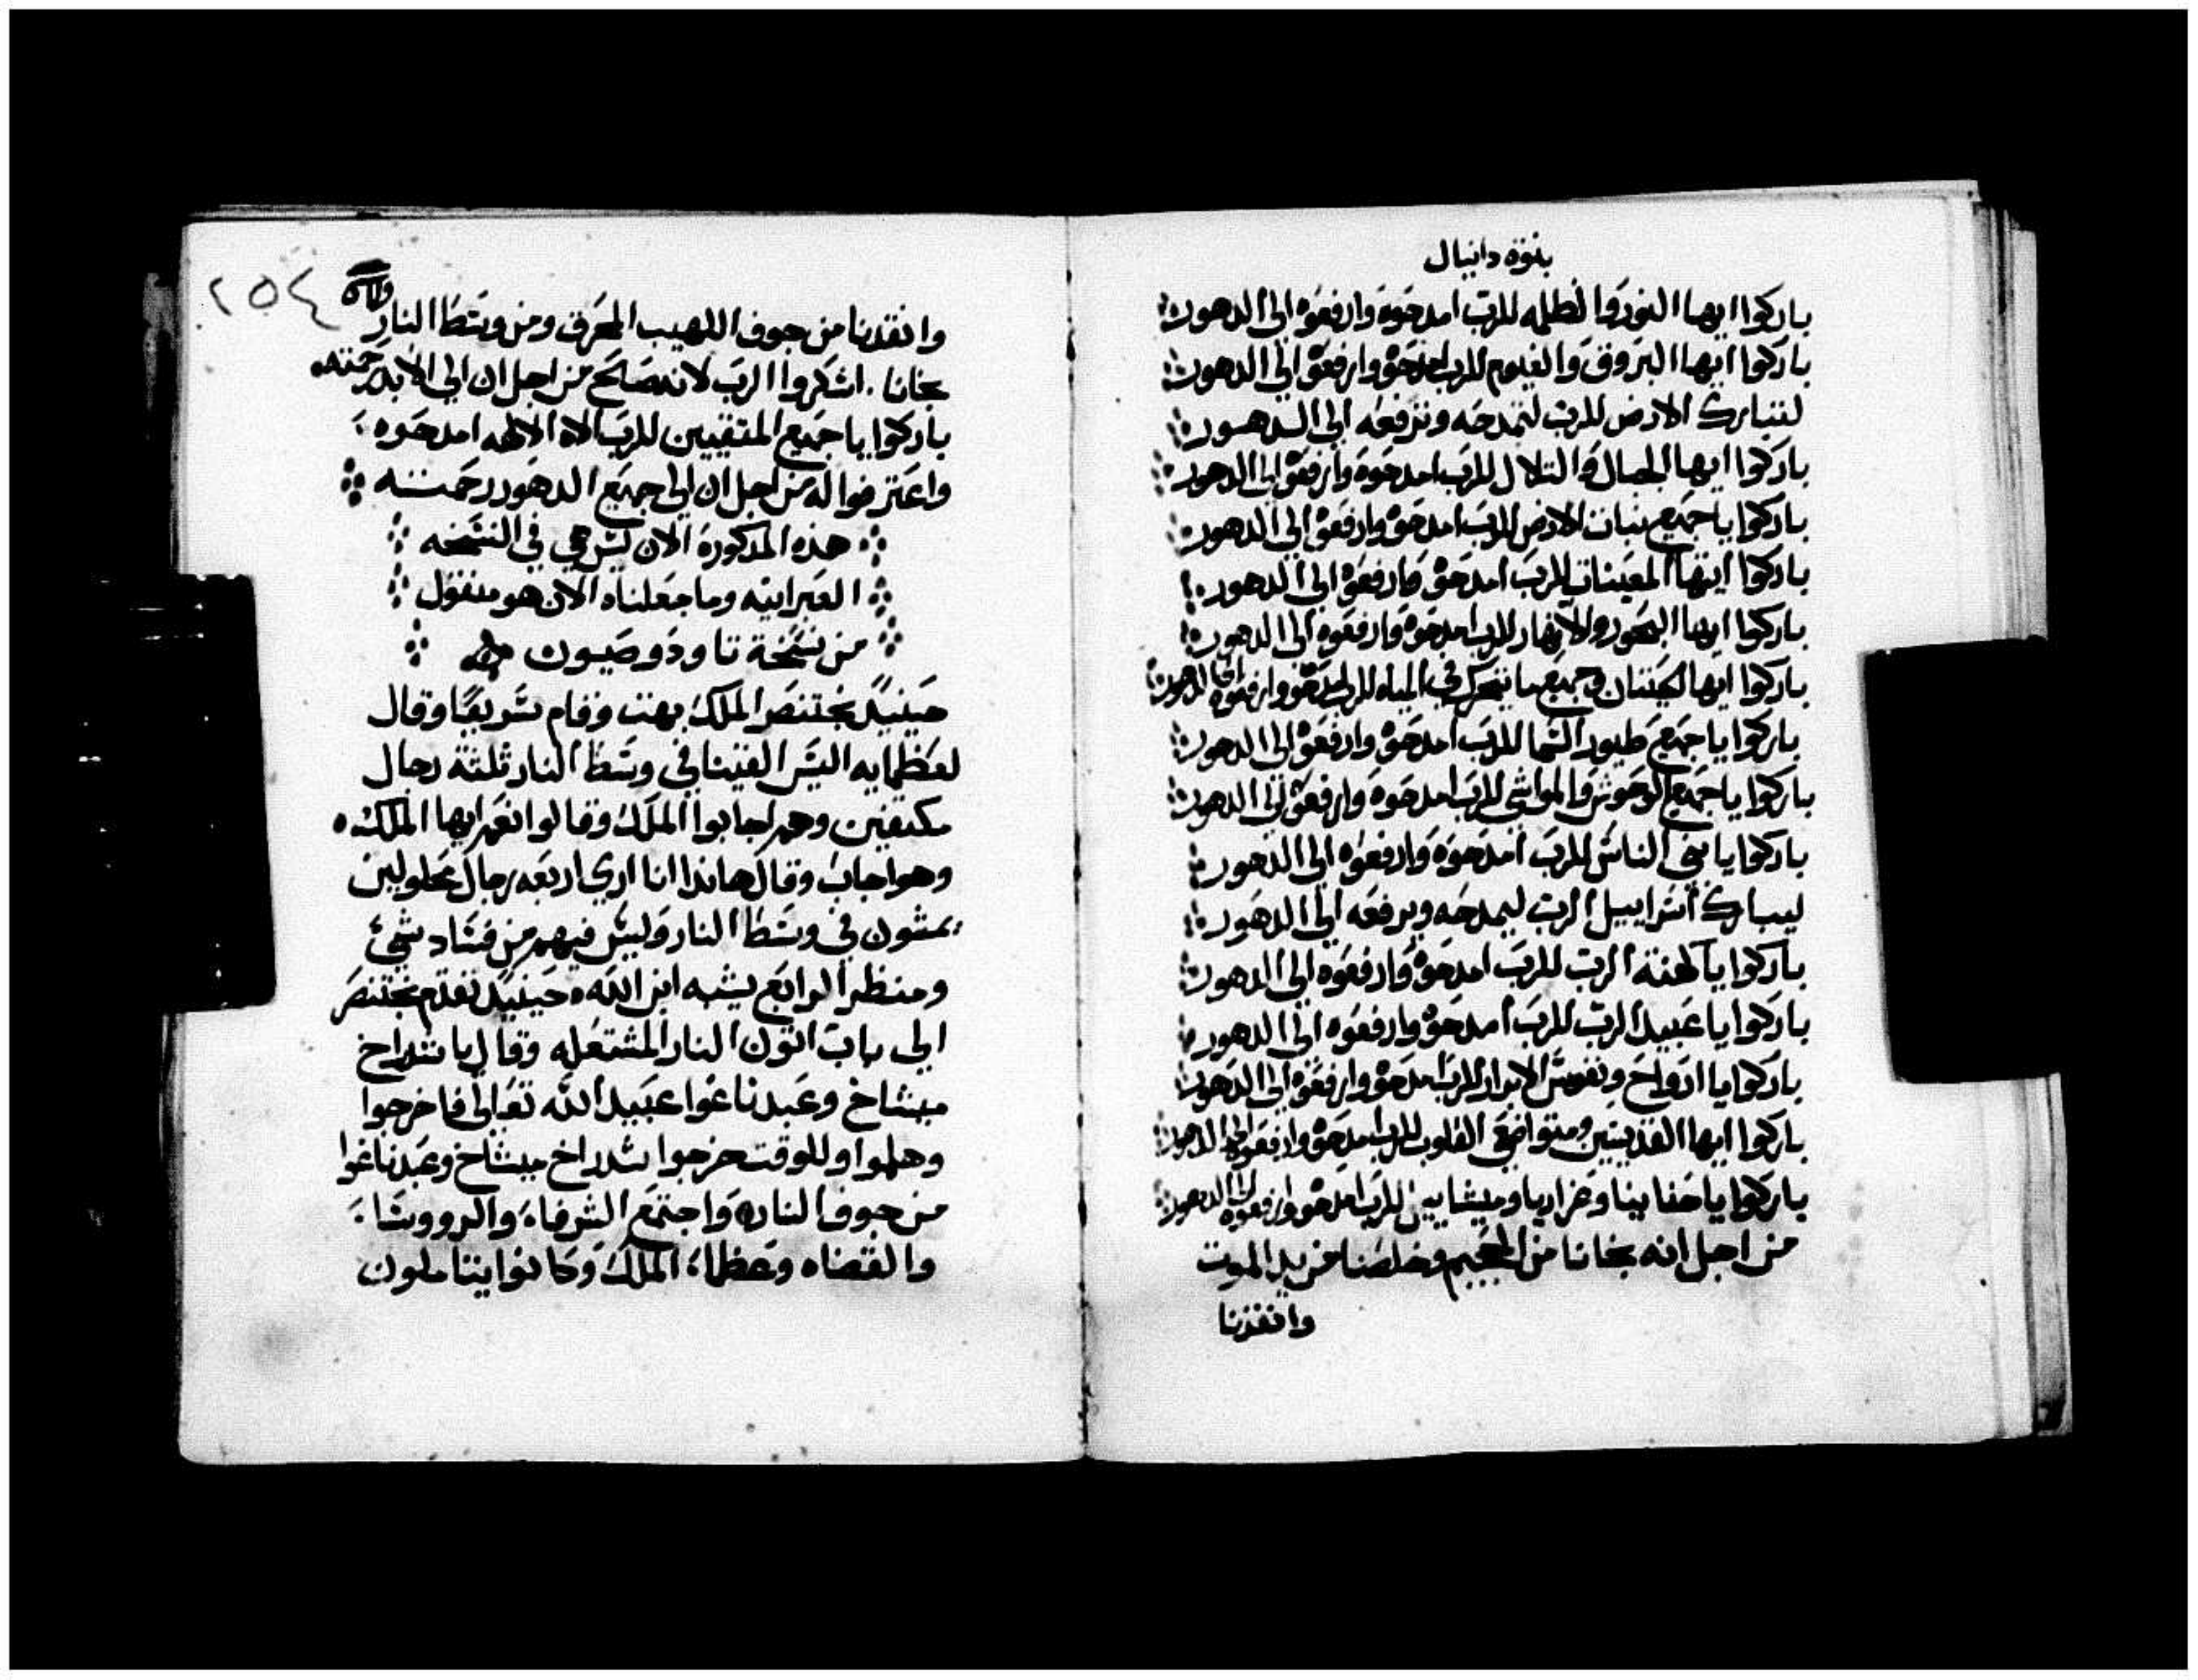 بنوة دانيال
باركوا ايها النور والظلمه للرب امدحوه وارفعوه الى الدهور
باركوا ايها البروق والغيوم للرب امدحوه وارفعوه الى الدهور
لتتبارك الارض للرب لتمدحه وترفعه الى الدهور
باركوا ايها الجبال والتلال للرب امدحوه وارفعوه الى الدهور
باركوا يا جميع نبات الارض للرب امدحوه وارفعوه الى الدهور
باركوا ايتها المعينات للرب امدحوه وارفعوه الى الدهور
باركوا ايها البحور والانهار للرب امدحوه وارفعوه الى الدهور
باركوا ايها الحيتان وجميع ما يتحرك في المياه للرب امدحوه وارفعوه الى الدهور
باركوا يا جميع طيور السما للرب امدحوه وارفعوه الى الدهور
باركوا يا جميع الوحوش والمواشي للرب امدحوه وارفعوه الى الدهور
باركوا يا بني الناس للرب امدحوه وارفعوه الى الدهور
ليبارك اسراييل الرب ليمدحه ويرفعه الى الدهور
باركوا يا كهنة الرب للرب امدحوه وارفعوه الى الدهور
باركوا يا عبيد الرب للرب امدحوه وارفعوه الى الدهور
باركوا يا ارواح ونفوس الابرار للرب امدحوه وارفعوه الى الدهور
باركوا ايها القديسين ومتواضعي القلوب للرب امدحوه وارفعوه الى الدهور
باركوا يا حنانيا وعزاريا وميشاييل للرب امدحوه وارفعوه الى الدهور
من اجل انه نجانا من الجحيم وخلصنا من يد الموت
وانقذنا
٢٥٤
وانقدنا من جوف اللهيب المحرق ومن وسط النار
نجانا . اشكروا الرب لانه صالح من اجل ان الى الابد رحمته
باركوا يا جميع المتقيين للرب الاه الالهه امدحوه
واعترفوا له من اجل ان الى جميع الدهور رحمته
هذه المذكورة الان ليس هي في النسخه
العبرانيه وما جعلناه الان هو منقول
من نسخة تاودوصيون
حينيد بختنصر الملك بهت وقام سريعًا وقال
لعظمايه اليس القينا في وسط النار ثلثة رجال
مكتفين وهم اجابوا الملك وقالوا نعم ايها الملك
وهو اجاب وقال هاندا انا ارى اربعه رجال محلولين
يمشون في وسط النار وليس فيهم من فساد شيء
ومنظر الرابع يشبه ابن الله . حينيد تقدم بختنصر
الى باب اتون النار المشتعله وقال يا شدراخ
ميشاخ وعبدناغوا عبيد الله تعالى فاخرجوا
وهلموا وللوقت خرجوا شدراخ ميشاخ وعبدناغوا
من جوف النار واجتمع الشرفاء والرووسا
والقضاه وعظماء الملك وكانوا يتاملون